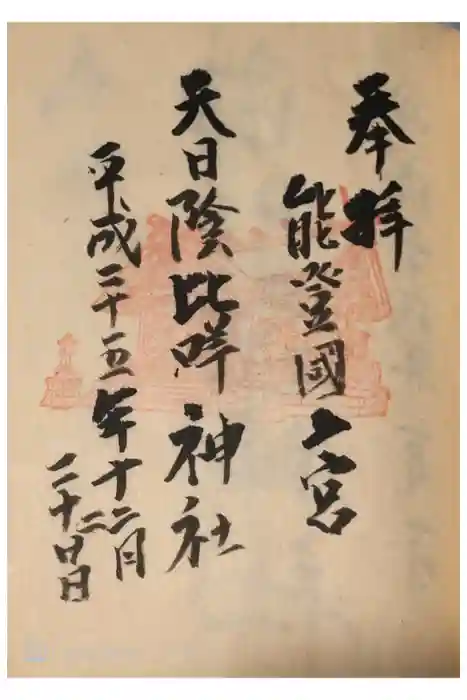 奉拝
能登國二宮
天日陰比咩神社
平成二十五年十二月
二十日